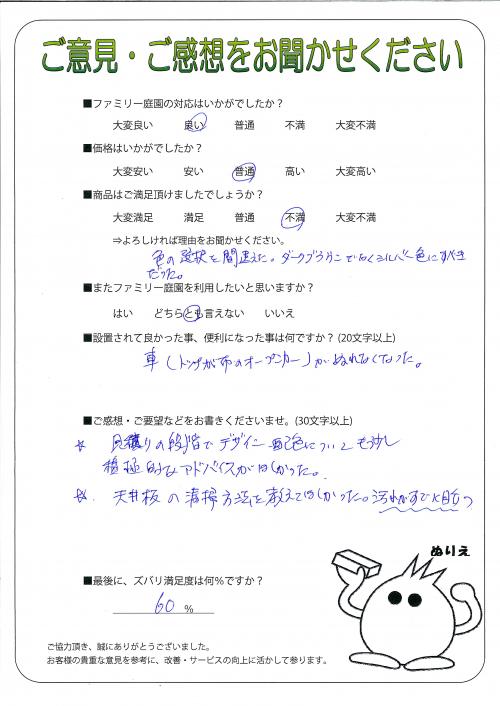 ご意見・ご感想をお聞かせください
■ファミリー庭園の対応はいかがでしたか？
大変良い 良い 普通 不満 大変不満
■価格はいかがでしたか？
大変安い 安い 普通 高い 大変高い
■商品はご満足頂けましたでしょうか？
大変満足 満足 普通 不満 大変不満
⇒よろしければ理由をお聞かせください。
色の選択を間違えた。ダークブラウンでなくシルバー色にすべき
だった。
■またファミリー庭園を利用したいと思いますか？
はい どちらとも言えない いいえ
■設置されて良かった事、便利になった事は何ですか？(20文字以上)
車（トップが布のオープンカー）がぬれなくなった。
■ご感想・ご要望などをお書きくださいませ。(30文字以上)
☆ 見積りの段階でデザイン・配色についてもう少し
積極的なアドバイスがほしかった。
☆. 天井板の清掃方法を教えてほしかった。汚れがすでに目立つ
ぬりえ
■最後に、ズバリ満足度は何％ですか？
60 ％
ご協力頂き、誠にありがとうございました。
お客様の貴重な意見を参考に、改善・サービスの向上に活かして参ります。